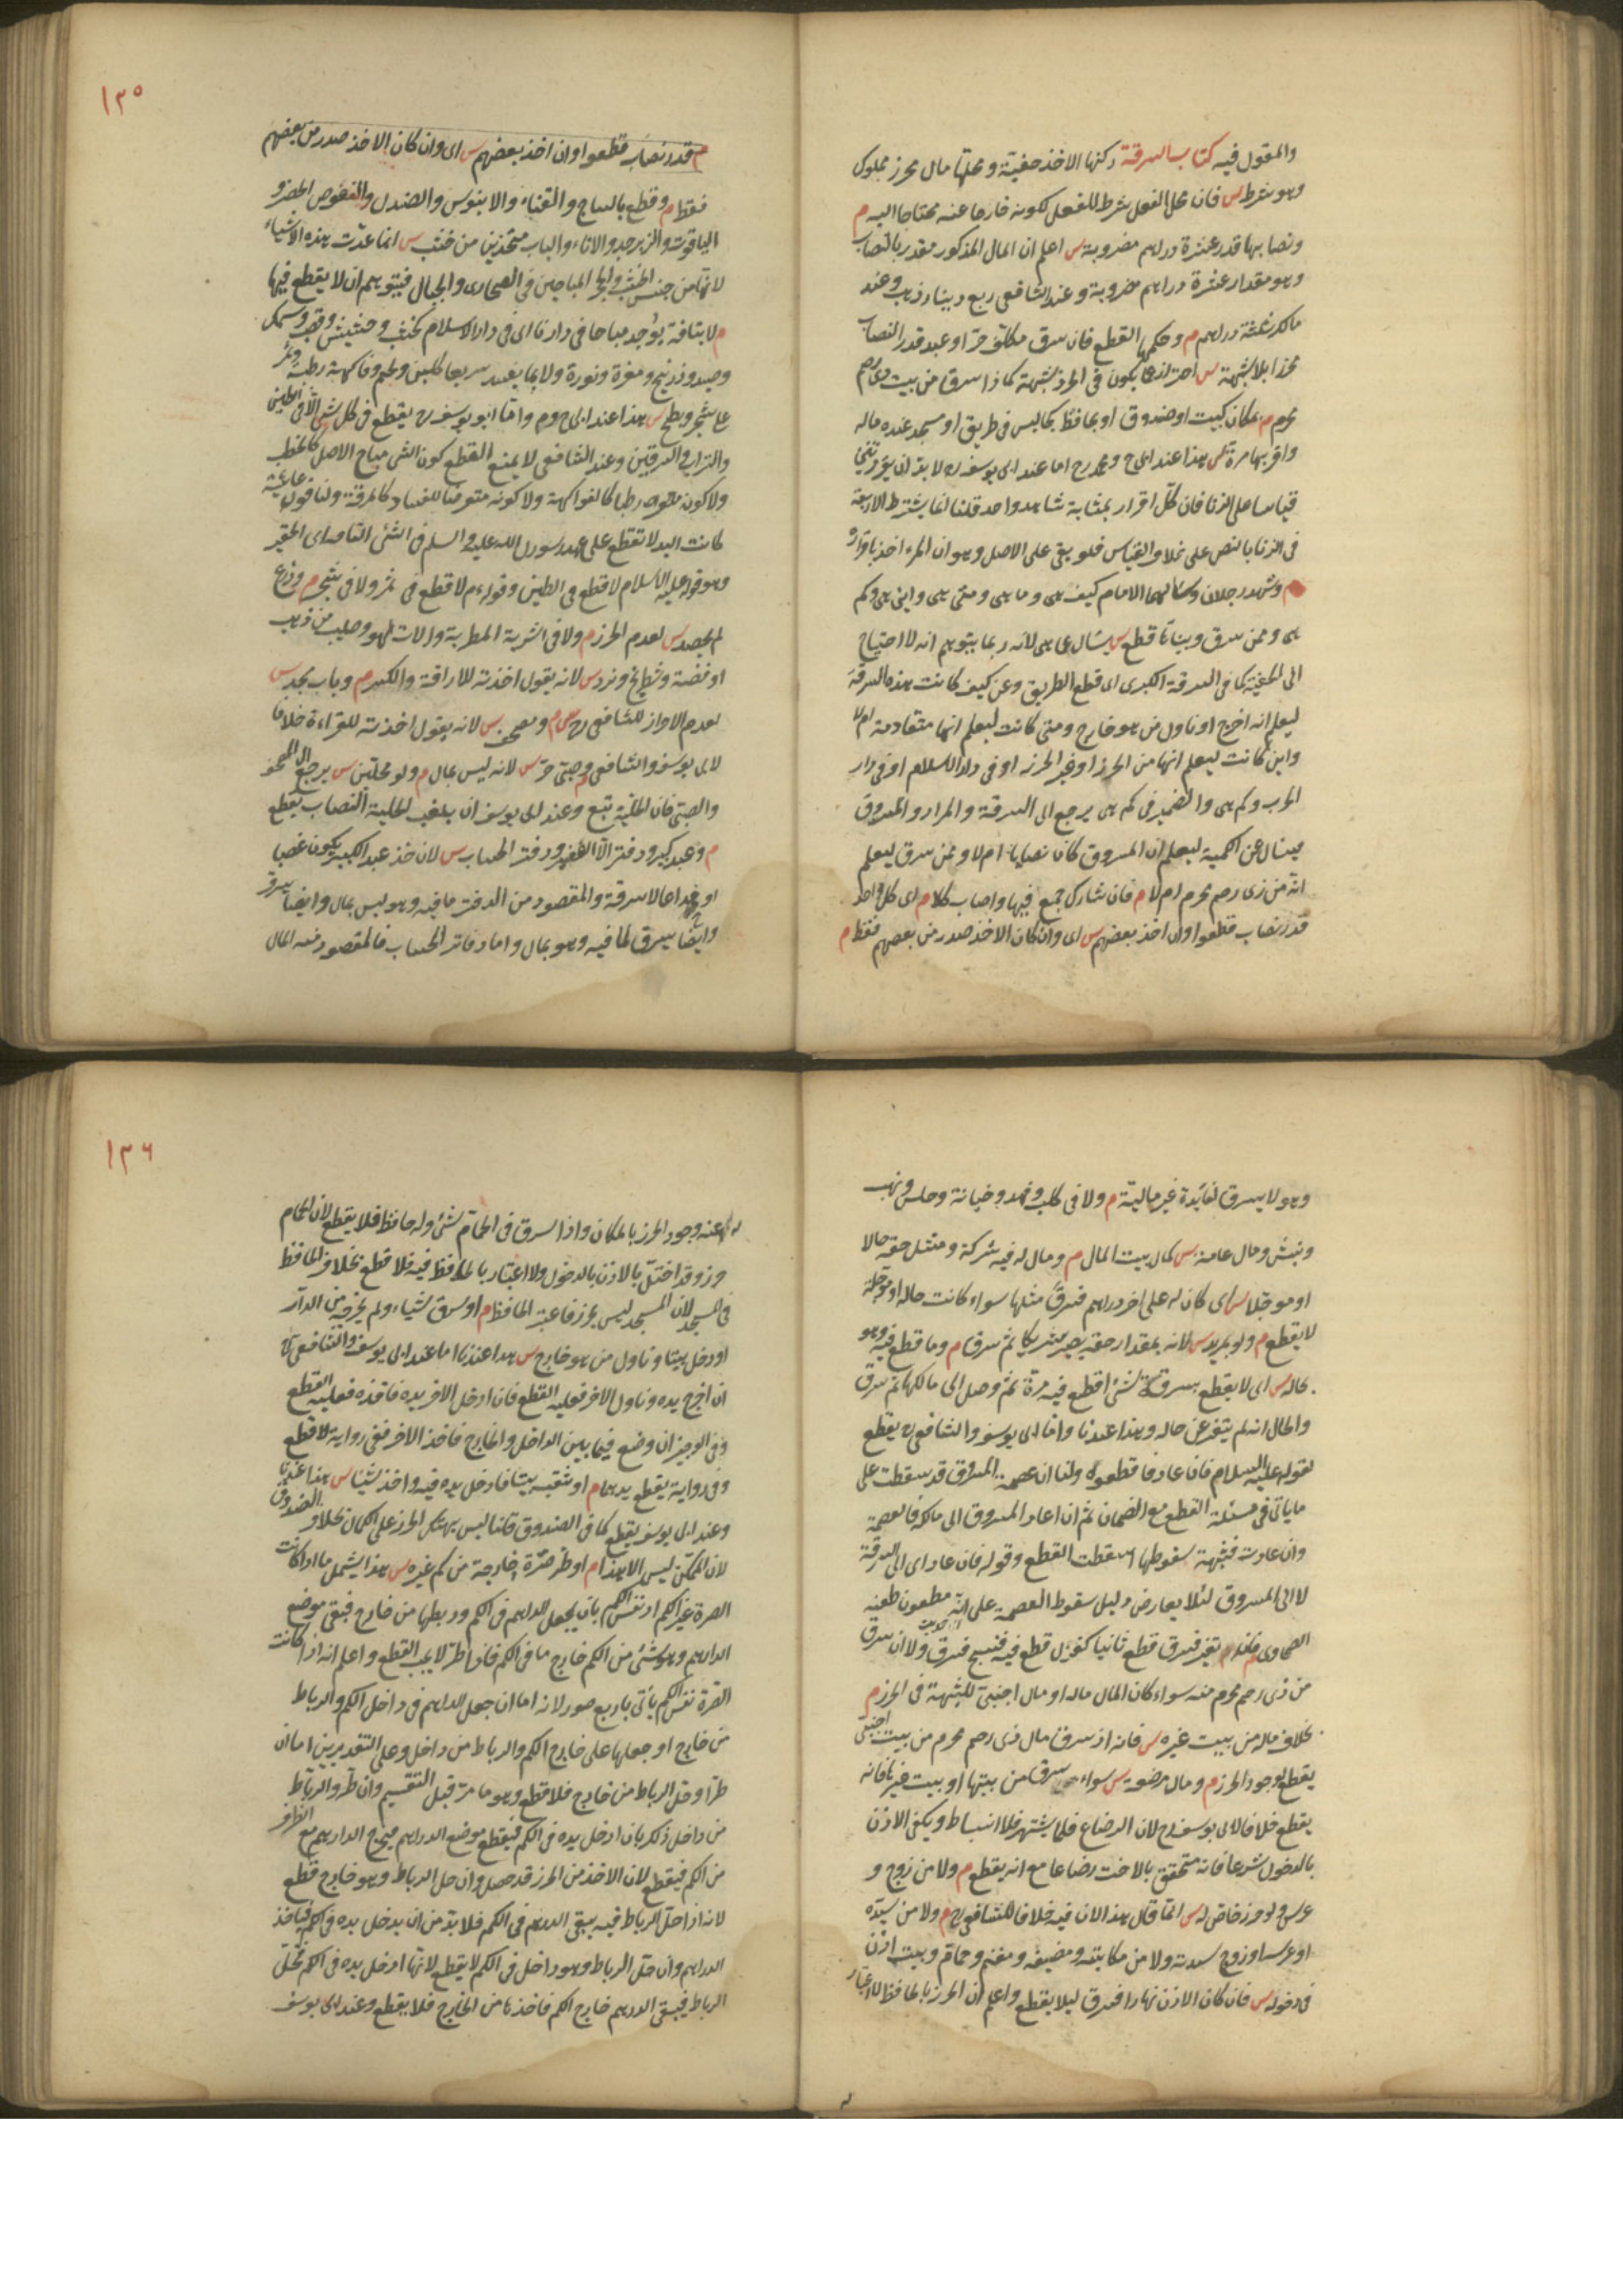 والمقول فيه كتاب السرقة ركنها الاخذ خفية ومحلها مال محرز مملوك
وهو شرط س فان محل الفعل شرط للفعل لكونه خارجا عنه محتاجا اليه م
ونصابها قدر عشرة دراهم مضروبة س اعلم ان المال المذكور مقدر بالنصاب
وهو مقدار عشرة دراهم مضروبة وعند الشافعي ربع دينار ذهب وعند
مالك ثلثة دراهم م وحكمها القطع فان سرق مكلف حر او عبد قدر النصاب
محرزا بلا شبهة س احتراز عما يكون في الحرز شبهة كما اذا سرق من بيت ذي رحم
محرم م بمكان كبيت او صندوق او بحافظ كجالس في طريق او مسجد عنده ماله
واقر بها مرة س هذا عند ابي ح ومحمد رح اما عند ابي يوسف رح لا بد ان يقر مرتين
قياسا على الزنا فان كل اقرار بمثابة شاهد واحد قلنا انما يشترط الاربعة
في الزنا بالنص على خلاف القياس فلو بقي على الاصل وهو ان المرء اخذ باقراره
م وشهد رجلان وسألهما الامام كيف هي وما هي ومتى هي واين هي وكم
هي وممن سرق وبيناها قطع س يسأل ما هي لانه ربما يتوهم انه لا احتياج
الى الخفية كما في السرقة الكبرى اى قطع الطريق وعن كيف كانت هذه السرقة
ليعلم انه اخرج او ناول من هو خارج ومتى كانت ليعلم انها متقادمة ام لا
واين كانت ليعلم انها من الحرز او غير الحرز او في دار الاسلام او في دار
الحرب وكم هي والضمير في كم هي يرجع الى السرقة والمراد والمسروق
فيسأل عن الكمية ليعلم ان المسروق كان نصابا ام لا وممن سرق ليعلم
انه من ذي رحم محرم ام لا م فان شارك جمع فيها واصاب كلا م اى كل واحد
قدر نصاب قطعوا وان اخذ بعضهم س اى وان كان الاخذ صدر من بعضهم فقط م
١٣٥
م قدر نصاب قطعوا وان اخذ بعضهم س اى وان كان الاخذ صدر من بعضهم
فقط م وقطع بالساج والقناء والابنوس والصندل والفصوص الخضر و
الياقوت والزبرجد والاناء والباب متخذين من خشب س انما عدت هذه الاشياء
لانها من جنس الخشب والحجر المباحين في الصحارى والجبال فيتوهم ان لا يقطع فيها
م لا بتافه يوجد مباحا في دارنا اى في دار الاسلام كخشب وحشيش وقصب وسمك
وصيد وزرنيخ ومغرة ونورة ولا بما يفسد سريعا كلبن ولحم وفاكهة رطبة وثمر
على شجر وبطيخ س هذا عند ابي ح وم واما ابو يوسف رح يقطع في كل شئ الا في الطين
والتراب والسرقين وعند الشافعي لا يمنع القطع كون الشئ مباح الاصل كالحطب
ولا كون رطبا كالفواكهة ولا كونه متعرضا للفساد كالمرقة ولنا قول عايشة
كانت اليد لا تقطع على عهد رسول الله عليه والسلم في الشئ التافه اى الحقير
وهو قوله عليه السلام لا قطع في الطين وقوله م لا قطع في ثمر ولا في شجر م وزرع
لم يحصد س لعدم الحرز م ولا في اشربة المطربة والات لهو وصليب من ذهب
او فضة وشطرنج ونرد س لانه يقول اخذته للاراقة والكسر م وباب مسجد س
لعدم الاحراز للشافعي رح م ومصحف س لانه يقول اخذته للقراءة خلافا
لابي يوسف والشافعي م وصبي حر س لانه ليس بمال م ولو محلين س يرجع الى المصحف
والصبي فان الحلية تبع وعند ابي يوسف ان بلغت الحلية النصاب يقطع
م وعبد كبير ودفتر الا الصغير ودفتر الحساب س لان اخذ عبد الكبير يكون غصبا
او خداعا لا سرقة والمقصود من الدفتر ما فيه وهو ليس بمال وايضا يسرق
وايضا يسرق لما فيه وهو بمال واما دفاتر الحساب فالمقصود منه المال
وهو لا يسرق لفايدة غير مالية م ولا في كلب وفهد وخيانة وخلس ونهب
ونبش ومال عامة س كمال بيت المال م ومال له فيه شركة ومثل حقه حالا
او موجلا س اى كان له على اخر دراهم فسرق مثلها سواء كانت حالة او موجلة
لا يقطع م ولو بمزيد س لانه بمقدار حقه يصير شريكا ثم سرق م وما قطع فيه وهو
بحاله س اى لا يقطع بسرقة شئ قطع فيه مرة ثم وصل الى مالكها ثم سرق
والحال انه لم يتغير عن حاله وهذا عندنا واما ابي يوسف والشافعي رح يقطع
لقوله عليه السلام فان عاد فاقطعوه ولنا ان عصمة المسروق قد سقطت على
ما ياتي في مسئلة القطع مع الضمان ثم ان اعاد المسروق الى مالكه فالعصمة
وان عادت فشبهة سقوطها اسقطت القطع وقوله فان عاد اى الى السرقة
لا الى المسروق لئلا يعارض دليل سقوط العصمة على انه مطعون طعنه
الطحاوى م فان تغير فسرق قطع ثانيا كغزل قطع فيه فنسج فسرق ولا ان سرق
من ذي رحم محرم منه سواء كان المال ماله او مال اجنبي للشبهة في الحرز م
بخلاف ماله من بيت غيره س فانه اذ سرق مال ذي رحم محرم من بيت اجنبي
يقطع لوجود الحرز م ومال مرضعة س سواء سرق من بيتها او بيت غيرها فانه
يقطع خلافا لابي يوسف رح لان الرضاع قلما يشتهر فلا انبساط ويكفي الاذن
بالدخول شرعا فانه متحقق بالاخت رضاعا مع انه يقطع م ولا من زوج و
عرس ولو حرز خاص له س انما قال هذا لان فيه خلافا للشافعي رح م ولا من سيده
او عرسه او زوج سيدته ولا من مكاتبه ومضيفه ومغنم وحمام وبيت اذن
في دخوله س فان كان الاذن نهارا فسرق ليلا يقطع واعلم ان الحرز بالحافظ لا اعتبار
١٣٦
له عند وجود الحرز بالمكان واذا سرق في الحمام شئ وله حافظ فلا يقطع لان الحمام
حرز وقد اختل بالاذن بالدخول ولا اعتبار بالحافظ فيه فلا قطع بخلاف الحافظ
في المسجد لان المسجد ليس بحرز فاعتبر الحافظ م او سرق شياء ولم يخرجه من الدار
او دخل بيتا وناول من هو خارج س هذا عندنا اما عند ابي يوسف والشافعي رح
ان اخرج يده وناول الاخر فعليه القطع فان ادخل الاخر يده فاخذه فعليه القطع
وفي الوجيز ان وضع فيما بين الداخل والخارج فاخذ الاخر ففي رواية لا قطع
وفي رواية يقطع يدهما م او نقب بيتا فادخل يده فيه واخذ شيئا س هذا عندنا
وعند ابي يوسف يقطع كما في الصندوق قلنا ليس بهتك الحرز على الكمال بخلاف الصندوق
لان الممكن ليس الا هذا م او طر صرة خارجة من كم غيره س هذا يشمل ما اذا كانت
الصرة غير الكم او نفس الكم بان يجعل الدراهم في الكم وربطها من خارج فبقي موضع
الدراهم وهو شئ من الكم خارج ما في الكم فان طر لا يجب القطع واعلم انه اذا كانت
الصرة نفس الكم ياتي باربع صور لانه اما ان جعل الدراهم في داخل الكم والرباط
من خارج او جعلها على خارج الكم والرباط من داخل وعلى التقديرين اما ان
طر او حل الرباط من خارج فلا قطع وهو ما مر قبل التقسيم وان طر والرباط
من داخل ذلك بان ادخل يده في الكم فيقطع موضع الدراهم فيخرج الدارهم مع الطرف
من الكم فيقطع لان الاخذ من الحرز قد حصل وان حل الرباط وهو خارج قطع
لانه اذا حل الرباط فيه يبقى الدرهم في الكم فلا بد من ان يدخل يده في الكم فياخذ
الدراهم وان حل الرباط وهو داخل في الكم لا يقطع لانه لما ادخل يده في الكم فحل
الرباط فيبقى الدرهم خارج الكم فاخذها من الخارج فلا يقطع وعند ابي يوسف